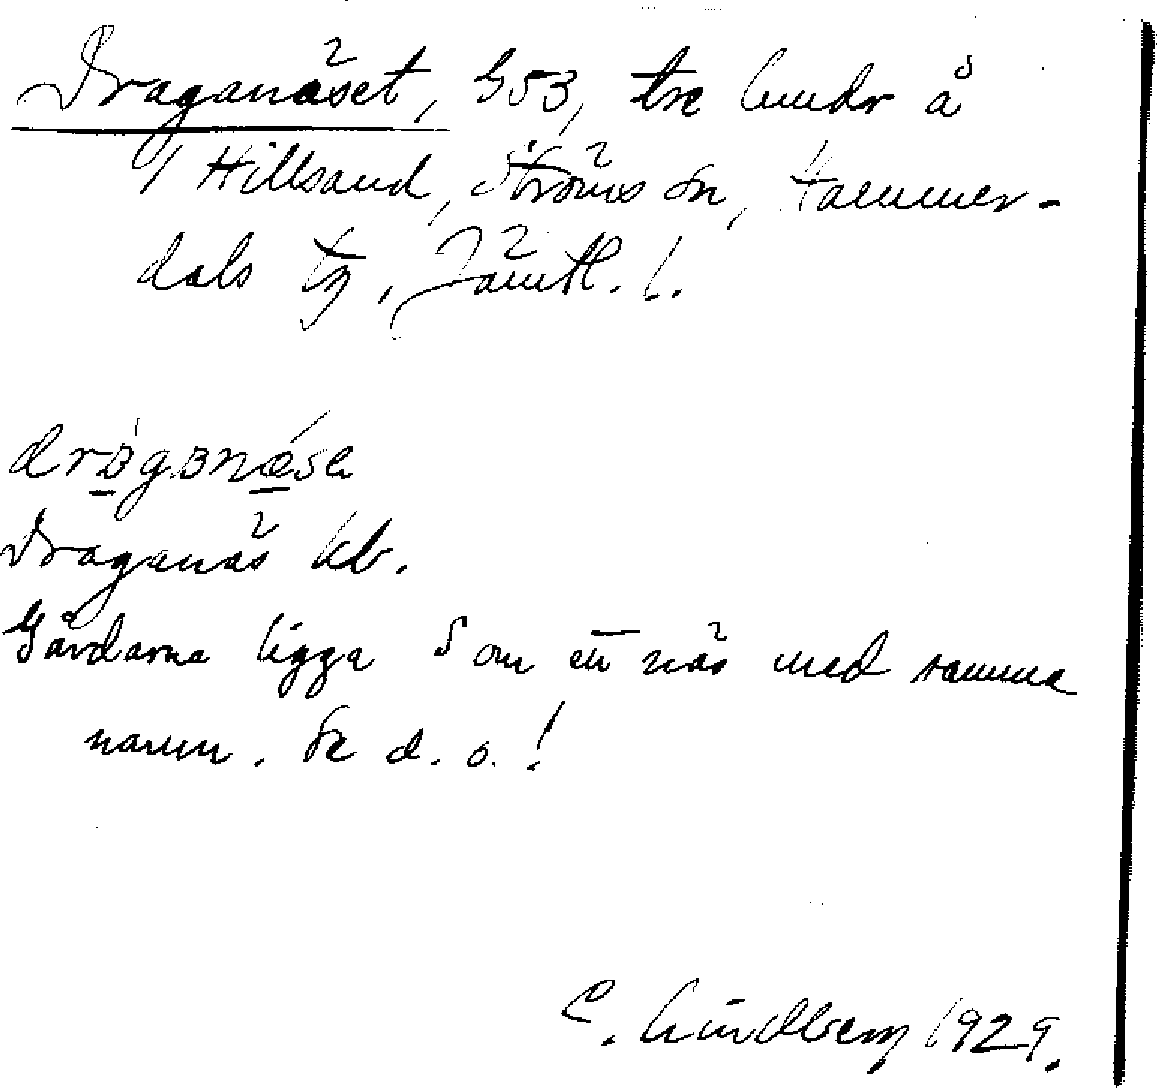 Draganäset, G53, tre lmdr å
1 Hillsand, Ströms sn, Hammer-
dals tg, Jämtl. l.
Draganäs kb.
Gårdarna ligga S om ett näs med samma
namn. Se d. o.!
C. Lindberg 1929.